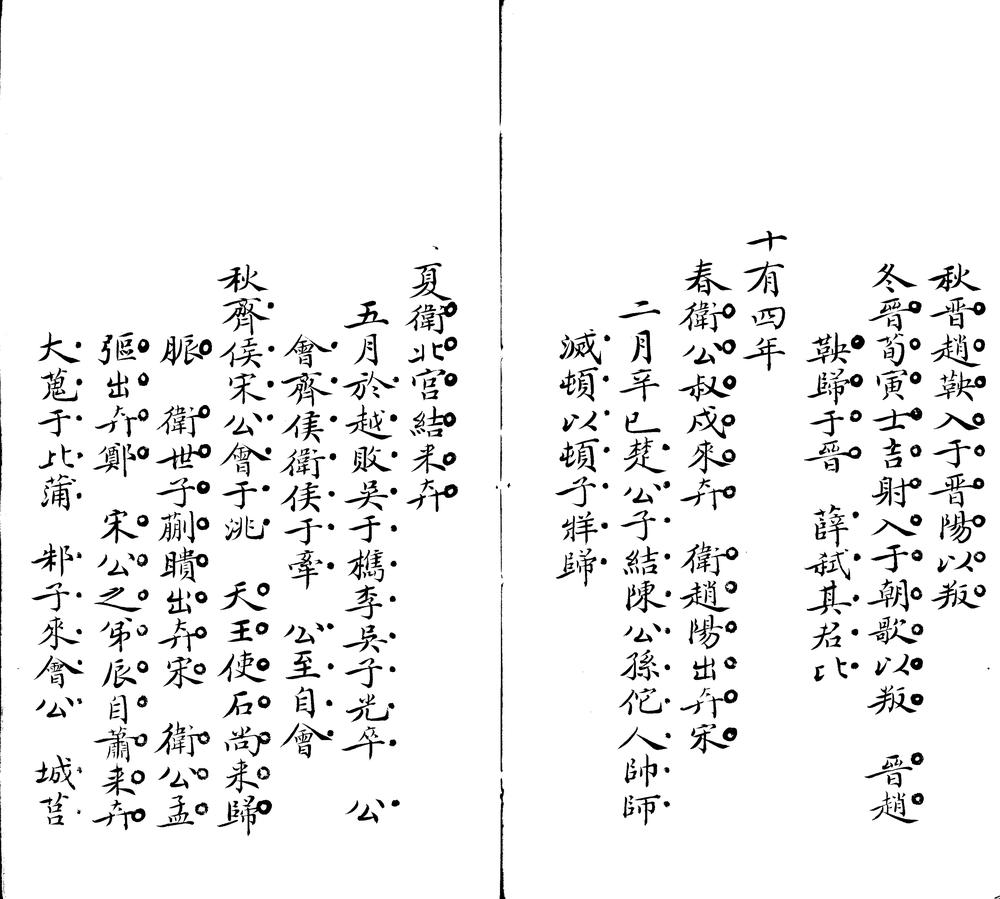 秋晉趙鞅入于晉陽以叛
冬晉荀寅士吉射入于朝歌以叛　晉趙
鞅歸于晉　薛弑其君比
十有四年
春衛公叔戍來奔　衛趙陽出奔宋
二月辛巳楚公子結陳公孫佗人帥師
滅頓以頓子牂歸
夏衛北宮結来奔
五月於越敗吳于檇李吳子光卒　公
會齊侯衛侯于牽　公至自會
秋齊侯宋公會于洮　天王使石尚来歸
脤　衛世子蒯聵出奔宋　衛公孟
彄出奔鄭　宋公之弟辰自蕭来奔
大蒐于比蒲　邾子來會公　城莒